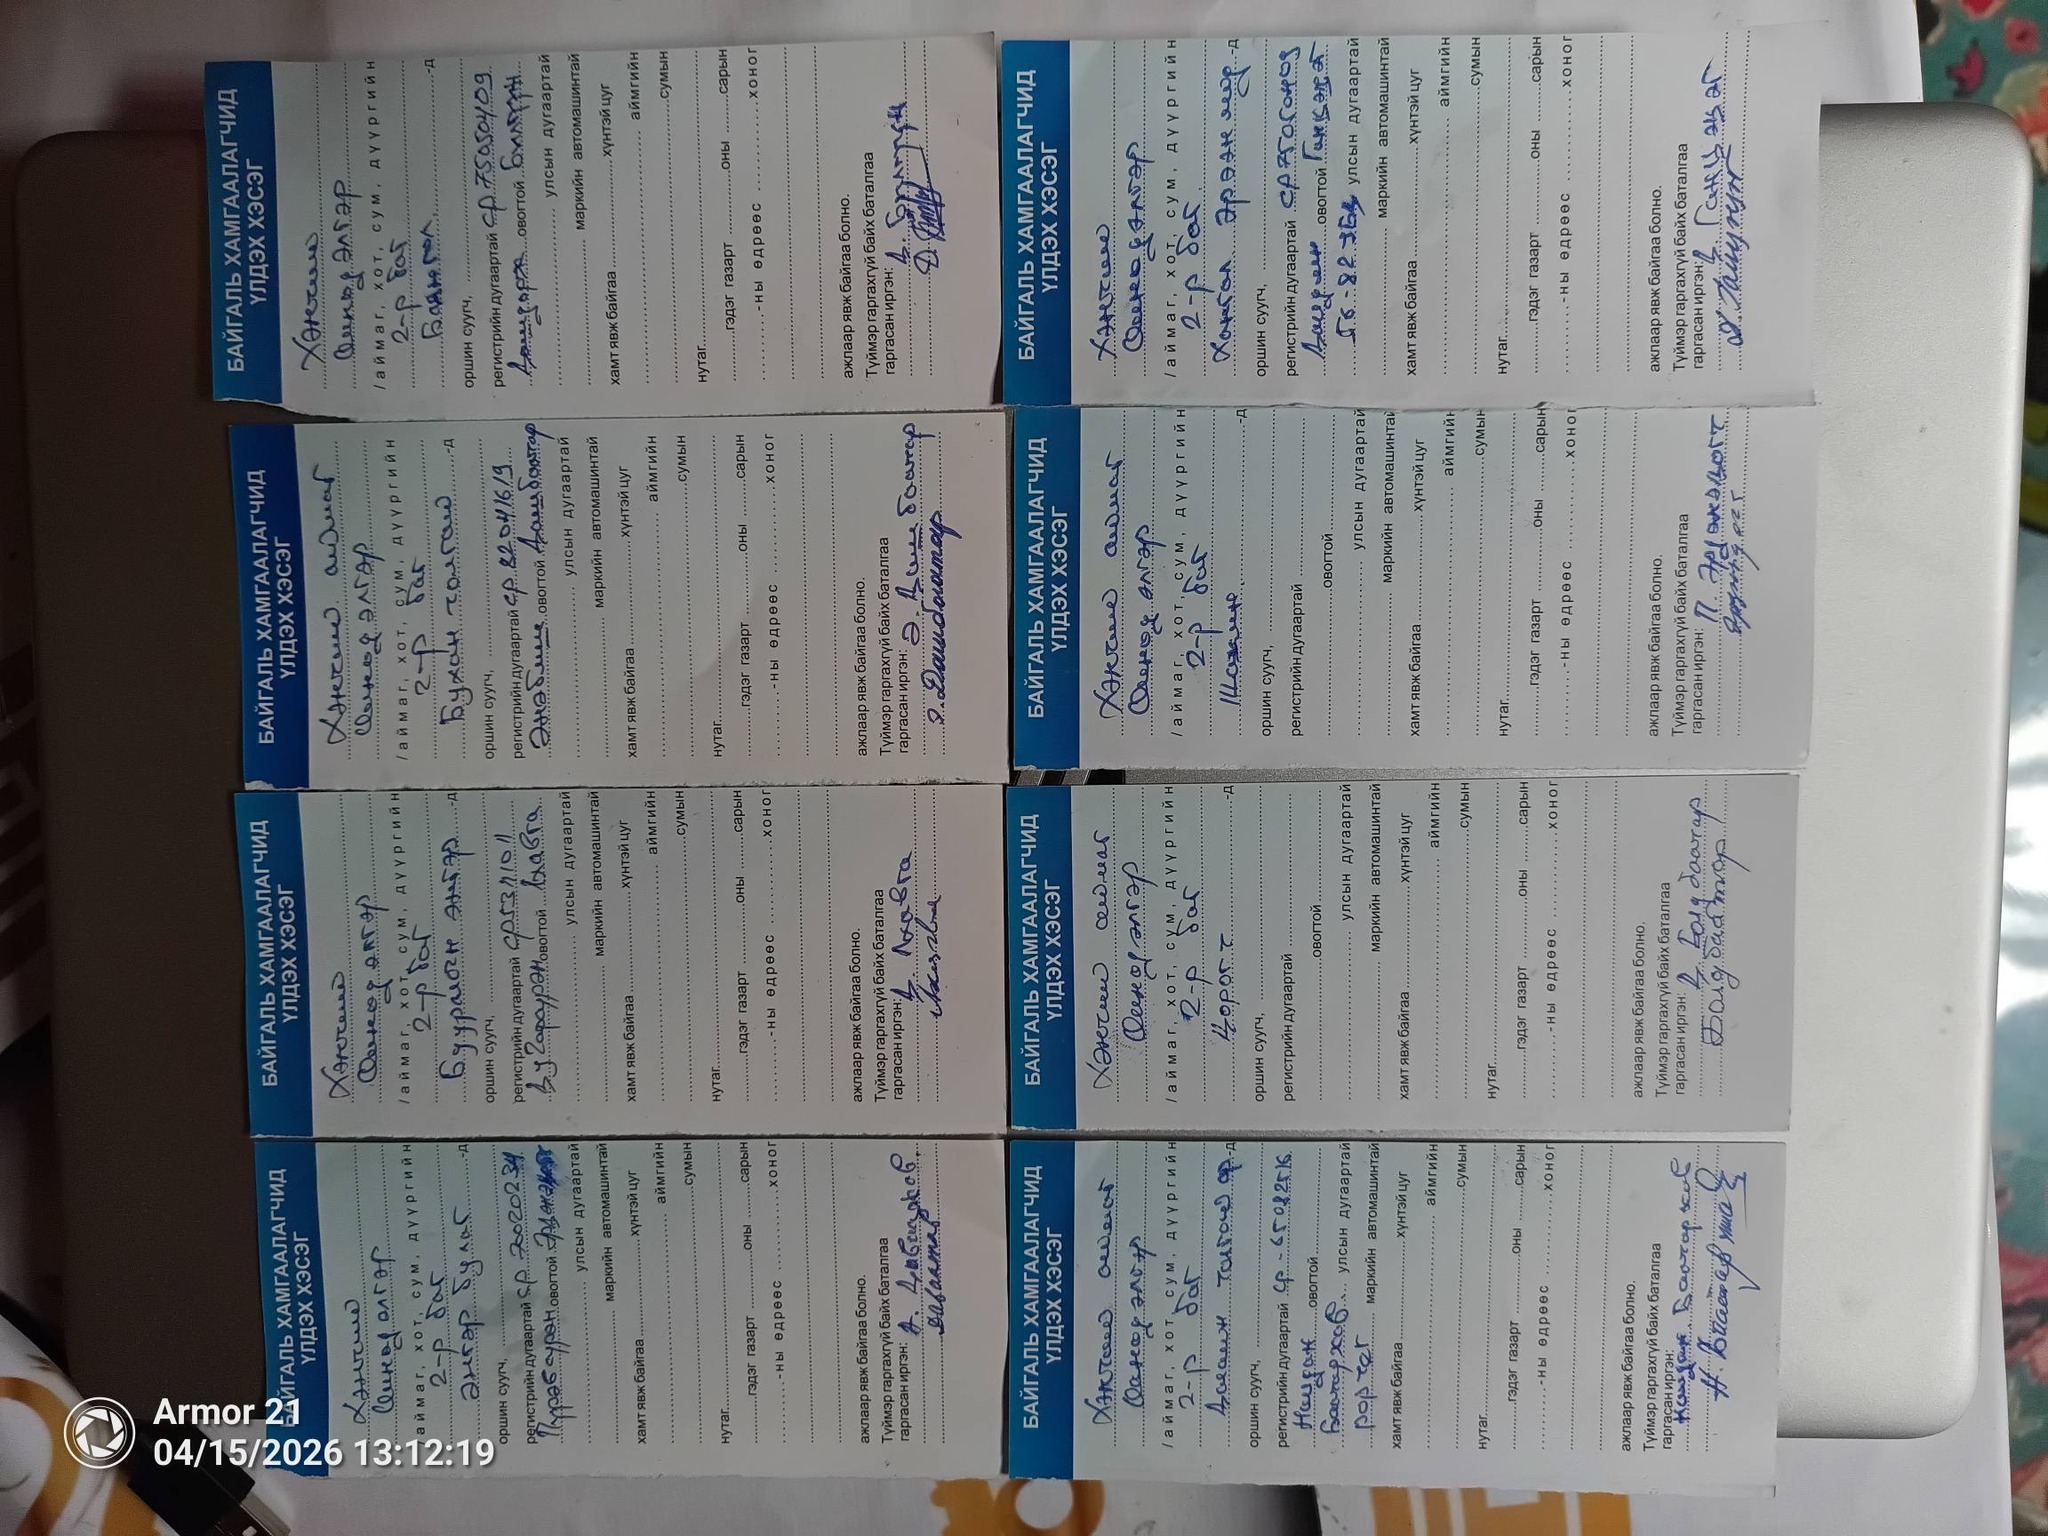 БАЙГАЛЬ ХАМГААЛАГЧИД
ҮЛДЭХ ХЭСЭГ
Хэнтий
Өмнөдэлгэр
/аймаг, хот, сум, дүүргийн
2-р баг
Баянгол -д
оршин суугч,
регистрийн дугаартай ср75050409
овогтой
улсын дугаартай
маркийн автомашинтай
хамт явж байгаа хүнтэй цуг
аймгийн
сумын
нутаг
гэдэг газарт оны сарын
-ны өдрөөс хоног
ажлаар явж байгаа болно.
Түймэр гаргахгүй байх баталгаа
гаргасан иргэн:
БАЙГАЛЬ ХАМГААЛАГЧИД
ҮЛДЭХ ХЭСЭГ
Хэнтий аймаг
Өмнөдэлгэр
/аймаг, хот, сум, дүүргийн
2-р баг
Бухан толгой -д
оршин суугч,
регистрийн дугаартай ср82041619
Энэбиш овогтой Дашбаатар
улсын дугаартай
маркийн автомашинтай
хамт явж байгаа хүнтэй цуг
аймгийн
сумын
нутаг
гэдэг газарт оны сарын
-ны өдрөөс хоног
ажлаар явж байгаа болно.
Түймэр гаргахгүй байх баталгаа
гаргасан иргэн: Э. Дашбаатар
БАЙГАЛЬ ХАМГААЛАГЧИД
ҮЛДЭХ ХЭСЭГ
Хэнтий
Өмнөдэлгэр
/аймаг, хот, сум, дүүргийн
2-р баг
Буурлын энгэр -д
оршин суугч,
регистрийн дугаартай
овогтой Лхавга
улсын дугаартай
маркийн автомашинтай
хамт явж байгаа хүнтэй цуг
аймгийн
сумын
нутаг
гэдэг газарт оны сарын
-ны өдрөөс хоног
ажлаар явж байгаа болно.
Түймэр гаргахгүй байх баталгаа
гаргасан иргэн: Лхавга
БАЙГАЛЬ ХАМГААЛАГЧИД
ҮЛДЭХ ХЭСЭГ
Хэнтий
Өмнөдэлгэр
/аймаг, хот, сум, дүүргийн
2-р баг
Энгэр булаг -д
оршин суугч,
регистрийн дугаартай ср
Пүрэвсүрэн овогтой
улсын дугаартай
маркийн автомашинтай
хамт явж байгаа хүнтэй цуг
аймгийн
сумын
нутаг
гэдэг газарт оны сарын
-ны өдрөөс хоног
ажлаар явж байгаа болно.
Түймэр гаргахгүй байх баталгаа
гаргасан иргэн:
БАЙГАЛЬ ХАМГААЛАГЧИД
ҮЛДЭХ ХЭСЭГ
Хэнтий
Өмнөдэлгэр
/аймаг, хот, сум, дүүргийн
2-р баг
-д
оршин суугч,
регистрийн дугаартай
овогтой
улсын дугаартай
маркийн автомашинтай
хамт явж байгаа хүнтэй цуг
аймгийн
сумын
нутаг
гэдэг газарт оны сарын
-ны өдрөөс хоног
ажлаар явж байгаа болно.
Түймэр гаргахгүй байх баталгаа
гаргасан иргэн:
БАЙГАЛЬ ХАМГААЛАГЧИД
ҮЛДЭХ ХЭСЭГ
Хэнтий аймаг
Өмнөдэлгэр
/аймаг, хот, сум, дүүргийн
2-р баг
-д
оршин суугч,
регистрийн дугаартай
овогтой
улсын дугаартай
маркийн автомашинтай
хамт явж байгаа хүнтэй цуг
аймгийн
сумын
нутаг
гэдэг газарт оны сарын
-ны өдрөөс хоног
ажлаар явж байгаа болно.
Түймэр гаргахгүй байх баталгаа
гаргасан иргэн: П.
БАЙГАЛЬ ХАМГААЛАГЧИД
ҮЛДЭХ ХЭСЭГ
Хэнтий аймаг
Өмнөдэлгэр
/аймаг, хот, сум, дүүргийн
2-р баг
Цорогт -д
оршин суугч,
регистрийн дугаартай
овогтой
улсын дугаартай
маркийн автомашинтай
хамт явж байгаа хүнтэй цуг
аймгийн
сумын
нутаг
гэдэг газарт оны сарын
-ны өдрөөс хоног
ажлаар явж байгаа болно.
Түймэр гаргахгүй байх баталгаа
гаргасан иргэн: Болдбаатар
Болдбаатар
БАЙГАЛЬ ХАМГААЛАГЧИД
ҮЛДЭХ ХЭСЭГ
Хэнтий аймаг
Өмнөдэлгэр
/аймаг, хот, сум, дүүргийн
2-р баг
-д
оршин суугч,
регистрийн дугаартай
овогтой
улсын дугаартай
маркийн автомашинтай
хамт явж байгаа хүнтэй цуг
аймгийн
сумын
нутаг
гэдэг газарт оны сарын
-ны өдрөөс хоног
ажлаар явж байгаа болно.
Түймэр гаргахгүй байх баталгаа
гаргасан иргэн:
Armor 21
04/15/2026 13:12:19